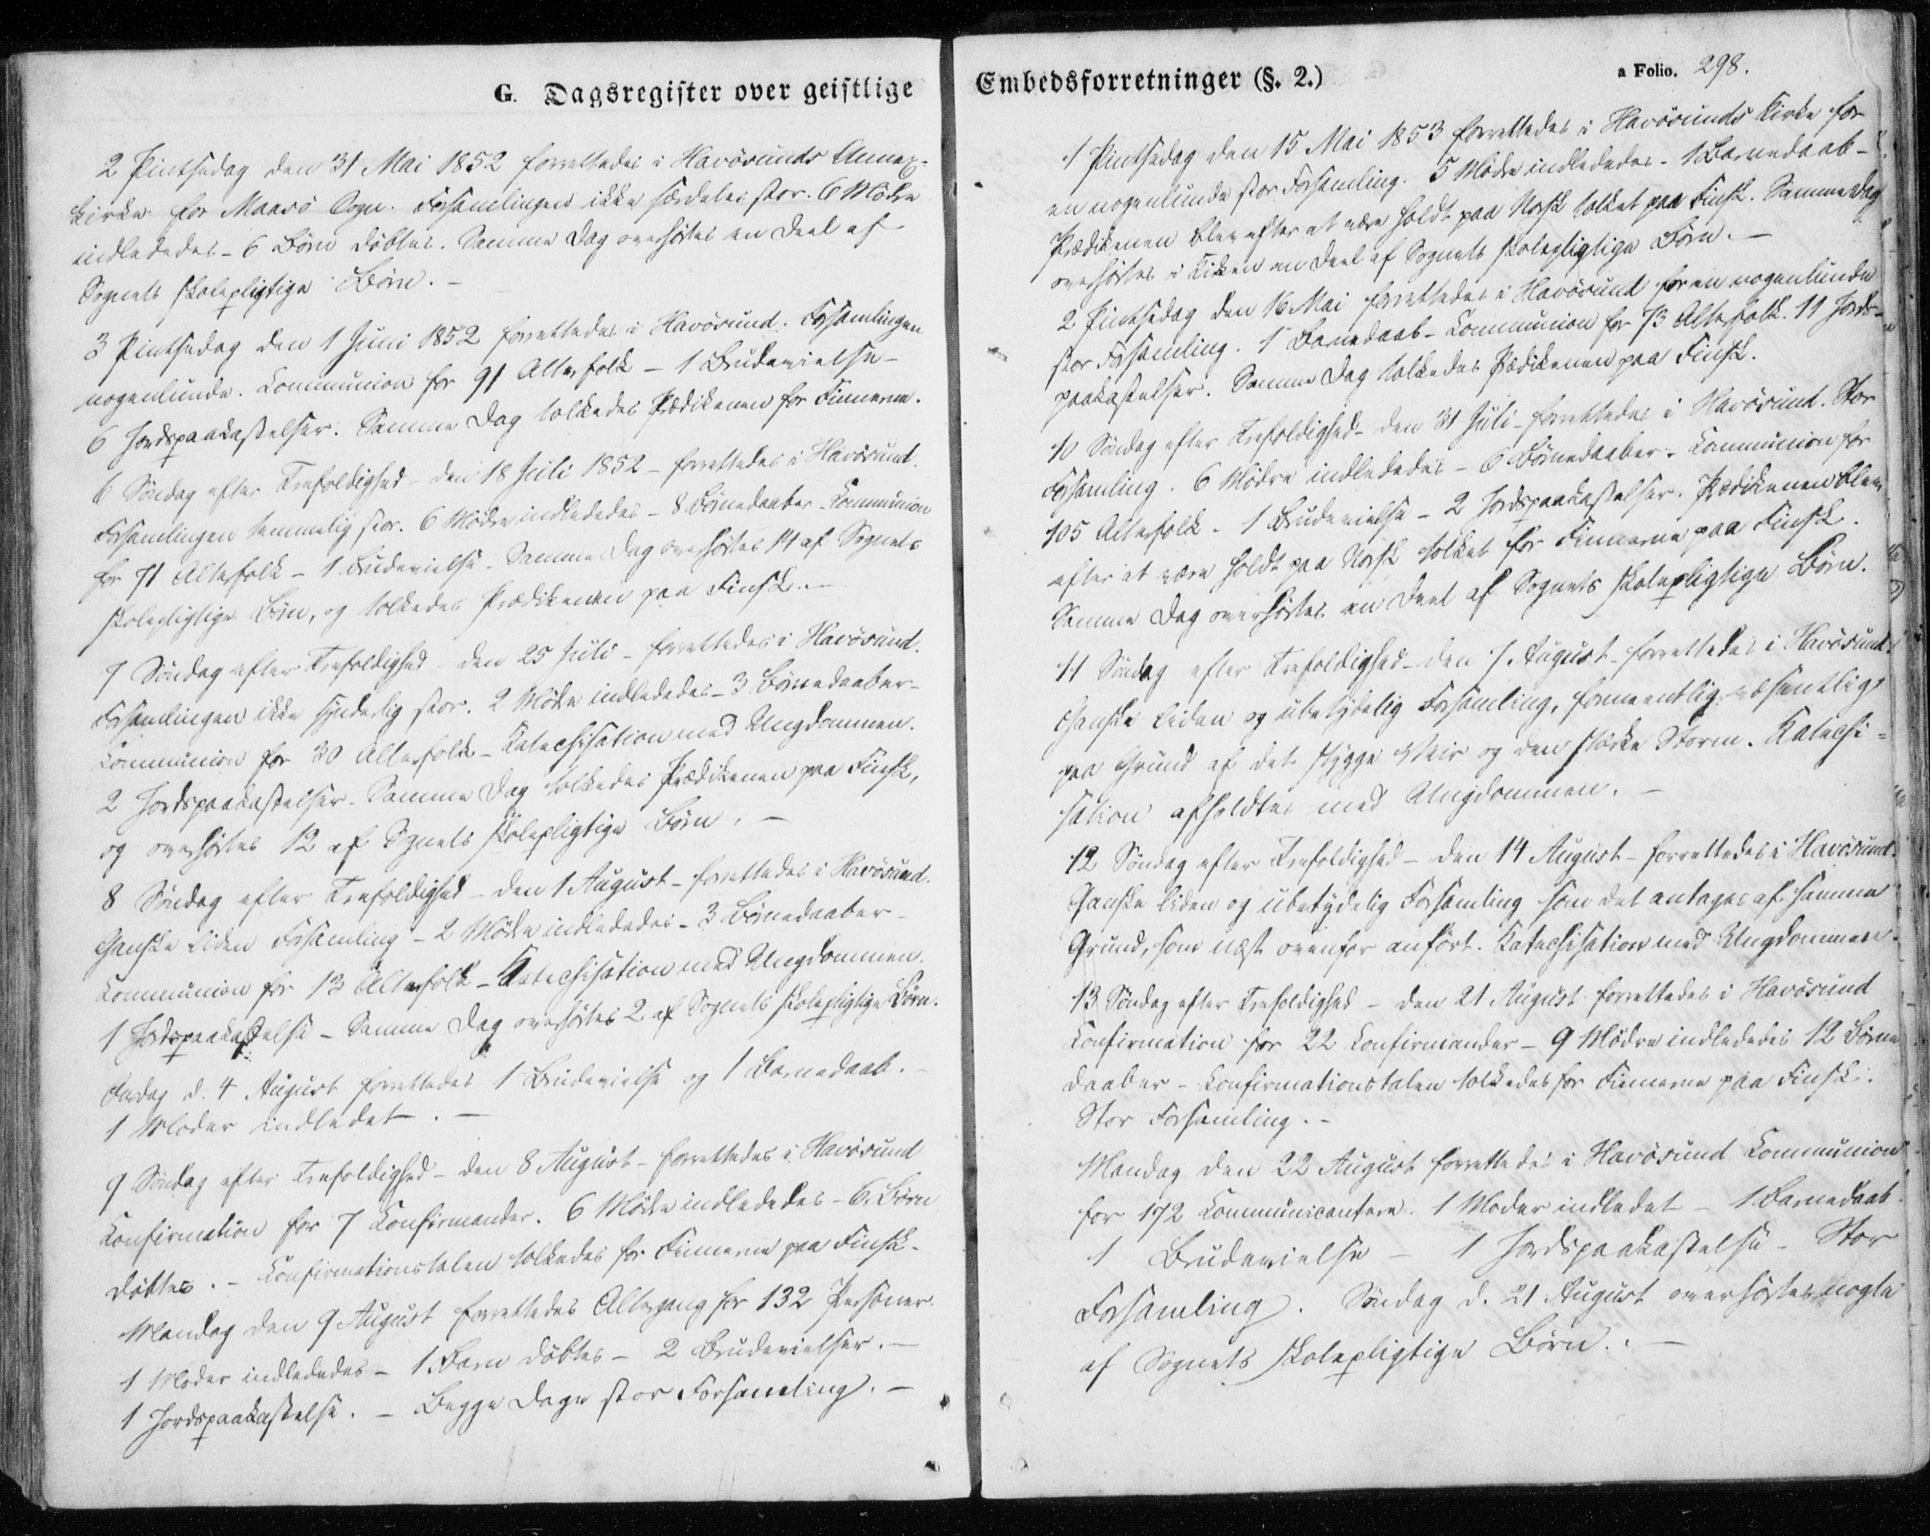 G. Dagsregister over geistlige
2 Pintsedag den 31 Mai 1852 forrettedes i Havösunds Annex-
kirke for Maasö Sogn. Forsamlingen ikke særdeles stor. 6 Mödre
indlededes - 6 Börn döbtes. Samme Dag overhörtes en Deel af
Sognets skolepligtige Börn. -
3 Pintsedag den 1 Juni 1852 forrettedes i Havösund. Forsamlingen
nogenlunde. Communion for 91 Altersfolk - 1 Brudevielse -
6 Jordspaakastelser. Samme Dag tolkedes Prædikenen for Finnerne.
6 Söndag efter Trefoldighed - den 18 Juli 1852 - forrettedes i Havösund.
Forsamlingen temmelig stor. 6 Mödre indlededes - 8 Börnedaaber - Communion
for 71 Altersfolk - 1 Brudevielse - Samme Dag overhörtes 14 af Sognets
skolepligtige Börn, og tolkedes Prædikenen paa Finsk. -
7 Söndag efter Trefoldighed - den 25 Juli - forrettedes i Havösund.
Forsamlingen ikke synderlig stor. 2 Mödre indlededes - 3 Börnedaaber -
Communion for 30 Altersfolk - Katechisation med Ungdommen.
2 Jordspaakastelser. Samme Dag tolkedes Prædikenen paa Finsk,
og overhörtes 12 af Sognets skolepligtige Börn. -
8 Söndag efter Trefoldighed - den 1 August - forrettedes i Havösund.
Ganske liden Forsamling - 2 Mödre indlededes - 3 Börnedaaber -
Communion for 13 Altersfolk - Katechisation med Ungdommen.
1 Jordspaakastelse - Samme Dag overhörtes 2 af Sognets skolepligtige Börn.
Onsdag d. 4 August forrettedes 1 Brudevielse og 1 Barnedaab. -
1 Moder indledet. -
9 Söndag efter Trefoldighed - den 8 August - forrettedes i Havösund
Confirmation for 7 Confirmander. 6 Mödre indlededes - 6 Börn
döbtes. - Confirmationstalen tolkedes for Finnerne paa Finsk.
Mandag den 9 August forrettedes Altergang for 132 Personer.
1 Moder indlededes - 1 Barn döbtes - 2 Brudevielser. -
1 Jordspaakastelse. - Begge Dage stor Forsamling. -
Embedsforretninger (§. 2.)
a Folio. 298.
1 Pintsedag den 15 Mai 1853 forrettedes i Havösunds Kirke for
en nogenlunde stor Forsamling. 5 Mödre indlededes - 1 Barnedaab -
Prædikenen blev efter at være holdt paa Norsk tolket paa Finsk. Samme Dag
overhörtes i Kirken en Deel af Sognets skolepligtige Börn. -
2 Pintsedag den 16 Mai forrettedes i Havösund for en nogenlunde
stor Forsamling. 1 Barnedaab - Communion for 73 Altersfolk. 11 Jords-
paakastelser. Samme Dag tolkedes Prædikenen paa Finsk.
10 Söndag efter Trefoldighed - den 31 Juli - forrettedes i Havösund. Stor
Forsamling. 6 Mödre indlededes - 6 Börnedaaber - Communion for
105 Altersfolk - 1 Brudevielse - 2 Jordspaakastelser. Prædikenen blev
efter at være holdt paa Norsk tolket for Finnerne paa Finsk.
Samme Dag overhörtes en Deel af Sognets skolepligtige Börn.
11 Söndag efter Trefoldighed - den 7 August - forrettedes i Havösund.
Ganske liden og ubetydelig Forsamling, formeentlig væsentligt
paa Grund af det stygge Veir og den stærke Storm. Katechi-
sation afholdtes med Ungdommen. -
12 Söndag efter Trefoldighed - den 14 August - forrettedes i Havösund.
Ganske liden og ubetydelig Forsamling som det antages af samme
Grund, som næst ovenfor anfört. Katechisation med Ungdommen.
13 Söndag efter Trefoldighed - den 21 August forrettedes i Havösund
Confirmation for 22 Confirmander - 9 Mödre indlededes 12 Börne
daaber - Confirmationstalen tolkedes for Finnerne paa Finsk.
Stor Forsamling. -
Mandag den 22 August forrettedes i Havösund Communion
for 172 Communicantere. 1 Moder indledet - 1 Barnedaab
1 Brudevielse - 1 Jordspaakastelse - Stor
Forsamling. Söndag d. 21 August overhörtes nogle
af Sognets skolepligtige Börn. -